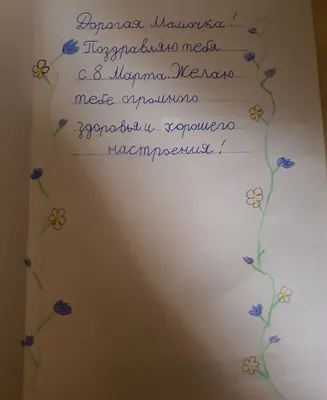 Дорогая Мамочка!
Поздравляю тебя
с 8 Марта. Желаю
тебе огромного
здоровья и хорошего
настроения!